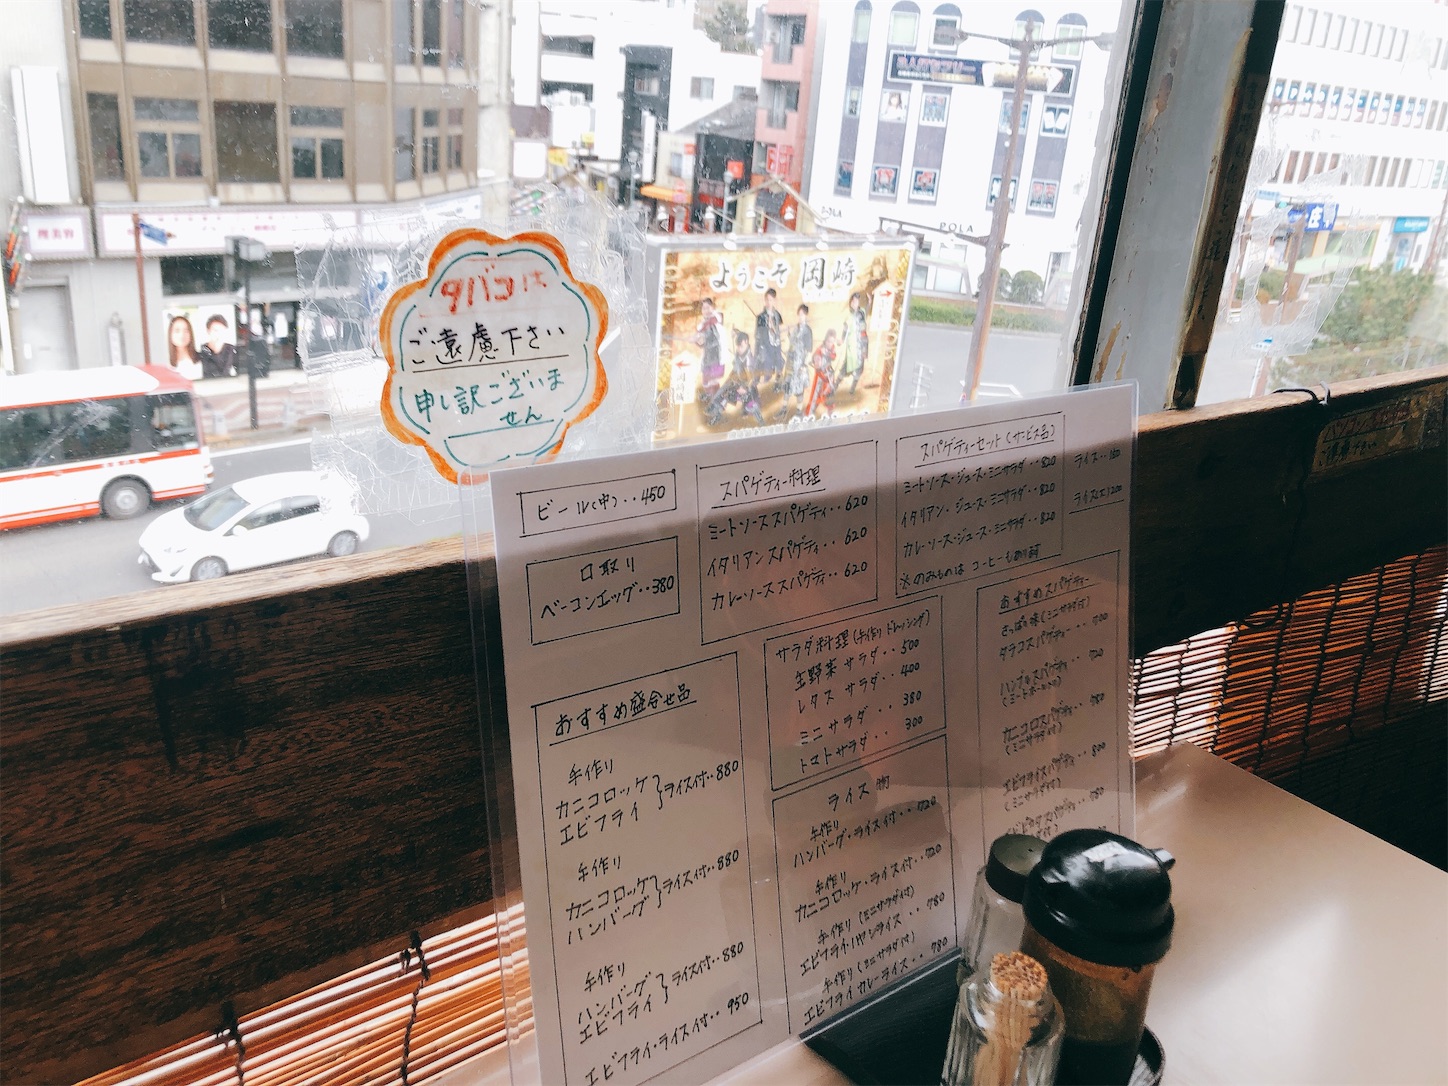 タバコは
ご遠慮下さい
申し訳ございま
せん
ようこそ 岡崎
POLA
POLA
ビール(中)‥450
口取り
ベーコンエッグ‥380
おすすめ盛合せ品
手作り
カニコロッケ
エビフライ
ライス付‥880
手作り
カニコロッケ
ハンバーグ
ライス付‥880
手作り
ハンバーグ
エビフライ
ライス付‥880
エビフライ・ライス付‥950
スパゲティー料理
ミートソーススパゲティ‥620
イタリアンスパゲティ‥620
カレーソーススパゲティ‥620
サラダ料理(手作りドレッシング)
生野菜サラダ‥500
レタス サラダ‥400
ミニサラダ‥380
トマトサラダ‥300
ライス物
手作り
ハンバーグ・ライス付‥720
手作り
カニコロッケ・ライス付‥720
手作り(ミニサラダ付)
エビフライ・ハヤシライス‥780
手作り(ミニサラダ付)
エビフライカレーライス‥780
スパゲティーセット(サービス品)
ミートソース・ジュース・ミニサラダ‥820
イタリアン・ジュース・ミニサラダ‥820
カレーソース・ジュース・ミニサラダ‥820
※のみものは コーヒーもあり
ライス‥150
ライス(大)200
おすすめスパゲティー
さっぱり味(ミニサラダ付)
タラコスパゲティー‥700
ハンブルスパゲティ‥720
(ミートボール)
カニコロスパゲティ‥780
(ミニサラダ付)
エビフライスパゲティ‥800
(ミニサラダ付)